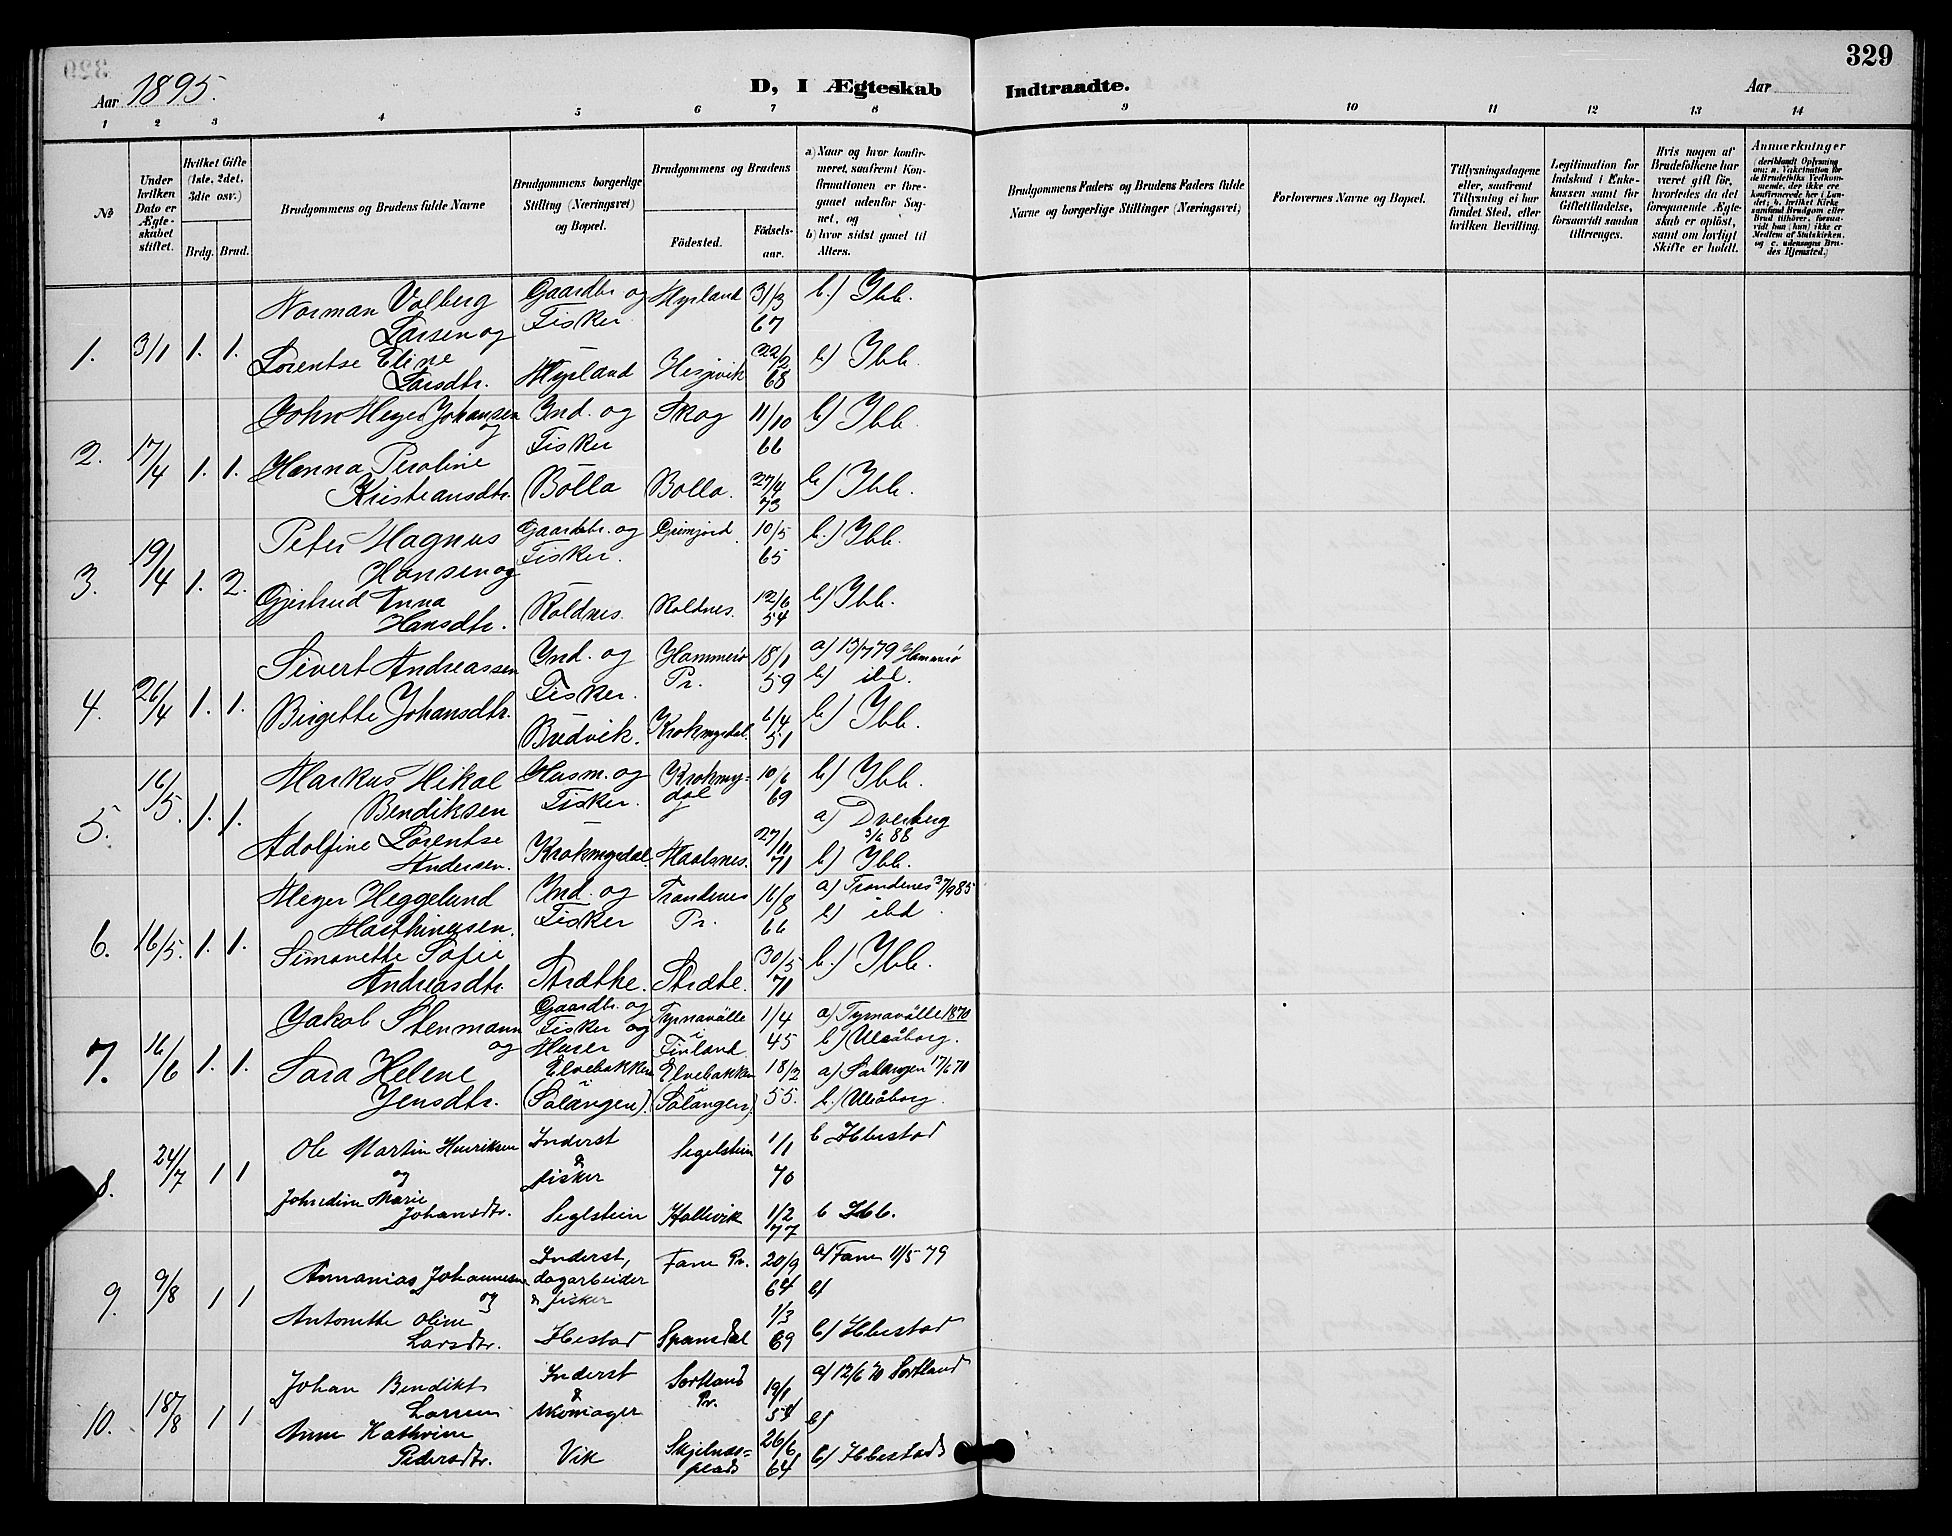 329
Aar 1895.
D, I Ægteskab Indtraadte.
Aar
1 2 3 4 5 6 7 8 9 10 11 12 13 14
№
Under hvilken Dato er Ægteskabet stiftet.
Hvilket Gifte (1ste, 2det, 3die osv.)
Brdg. Brud.
Brudgommens og Brudens fulde Navne
Brudgommens borgerlige Stilling (Næringsvei) og Bopæl.
Brudgommens og Brudens
Fødested.
Fødselsaar.
a) Naar og hvor konfirmeret, saafremt Konfirmationen er foregaaet udenfor Sognet, og
b) hvor sidst gaaet til Alters.
Brudgommens Faders og Brudens Faders fulde Navne og borgerlige Stillinger (Næringsvei)
Forlovernes Navne og Bopæl.
Tillysningsdagene eller, saafremt Tillysning ei har fundet Sted, efter hvilken Bevilling.
Legitimation for Indskud i Enkekassen samt for Giftetilladelse, forsaavidt saadan tiltrænges.
Hvis nogen af Brudefolkene har været gift før, hvorledes da det foregaaende Ægteskab er opløst, samt om lovligt Skifte er holdt.
Anmærkninger
(deriblandt Oplysning om: a. Vakcination for de Brudefolks Vedkommende, der ikke ere konfirmerede her i Landet; b. hvilket Kirkesamfund Brudgom eller Brud tilhører, forsaavidt han (hun) ikke er Medlem af Statskirken, og c. udensogns Brudes Hjemsted.)
1. 3/1 1. 1.
Norman Volberg Larsen og
Gaardbr og Fisker
Myrland 31/3 67 b.) Ibb.
Lorentse Eline Larsdtr.
Myrland Hesjevik 22/2 68 b) Ibb.
2. 17/4 1. 1.
John Meyer Johansen og
Ind. og Fisker
Skog 11/10 66 b) Ibb.
Hanna Peroline Kristiansdtr.
Bolla Bolla. 27/4 73 b) Ibb.
3. 19/4 1. 2.
Peter Magnus Hansen og
Gaardbr. og Fisker.
Grimjord 10/5 65 b.) Ibb.
Gjertrud Anna Hansdtr.
Roldnes. Roldnes. 12/6 54 b) Ibb.
4. 26/4 1. 1.
Sivert Andreassen
Ind. og Fisker.
Hammerø Pr. 18/1 59 a) 13/7 79 Hammerø
b) ibd.
Birgette Johansdtr.
Budvik. Krokmyrdal. 6/4 51 b) Ibb.
5. 16/5. 1. 1.
Markus Mikal Bendiksen
Husm. og Fisker.
Krokmyrdal 10/6 69 b) Ibb.
Adolfine Lorentse Andersen.
Krokmyrdal. Maalsnes. 27/11 71 a) Dverberg 3/6 88
b) Ibb.
6. 16/5. 1. 1.
Meyer Heggelund Mathingsen.
Ind. og Fisker
Trondenes Pr. 16/8 66 a) Trondenes 85
b) ibd.
Simonette Sofie Andreasdtr.
Strætte. Stræte. 30/5 71 b.) Ibb.
7. 16/6 1. 1.
Jakob Stenmann og
Gaardbr. og Fisker og Murer
Tyrnavälle i Finland 1/4 45 a) Tyrnavälle 1870
b) Uleåborg.
Sara Helene Jensdtr.
Elvebakken i (Salangen). Elvebakken i (Salangen) 18/2 55. a) Salangen 17/6 70
b.) Uleåborg.
8. 24/7 1 1
Ole Martin Henriksen og
Inderst & fisker
Segelstein 1/1 70 b Ibbestad
Johredine Marie Johansdtr.
Seglstein Hallevik 1/2 77 b Ibb.
9. 9/8 1 1
Annanias Johannesen og
Inderst, dagarbeider & fisker
Fane Pr. 20/9 64 a) Fane 11/5 79
b)
Antonette Oline Larsdtr.
Ibestad Spansdal 1/3 69 b) Ibbestad
10. 18/8 1 1
Johan Bendikt Larsen
Inderst & skomager
Sortland Pr. 19/1 54 a) 12/6 70 Sortland
b)
Anne Kathrine Pedersdtr.
Vik Skjelnesplads 26/6 64 b) Ibbestad